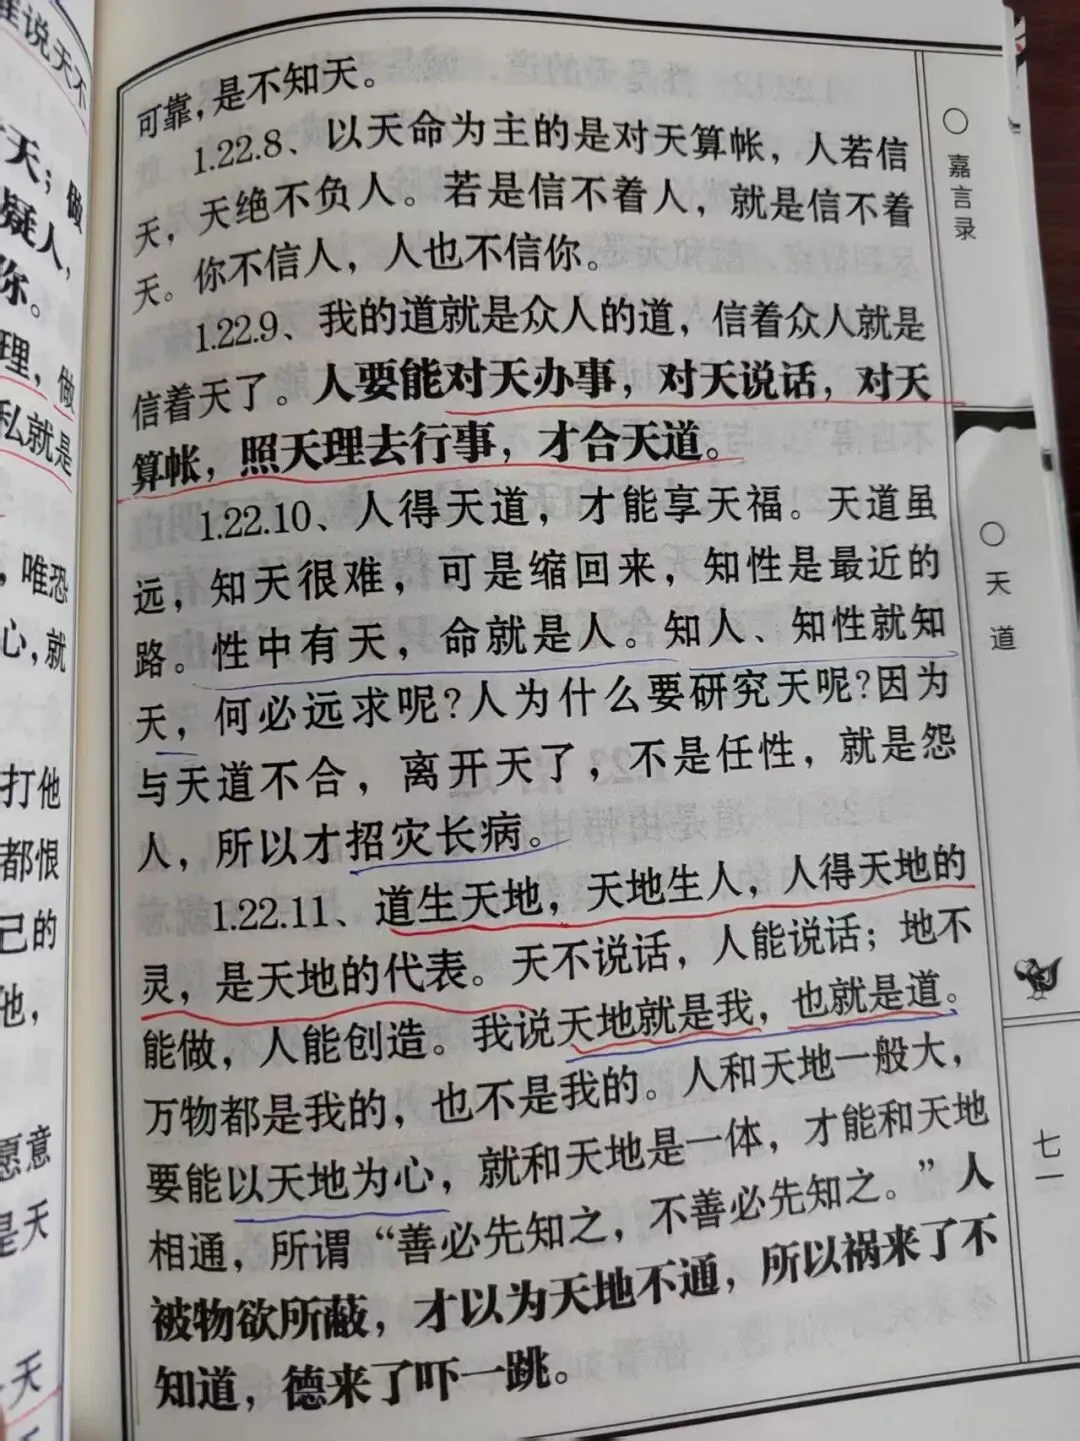 谁说天不
天；做
疑人，
你。
理，做
私就是
，唯恐
心，就
打他
都恨
己的
他，
愿意
是天
天
可靠，是不知天。
1.22.8、以天命为主的是对天算帐，人若信
天，天绝不负人。若是信不着人，就是信不着
天。你不信人，人也不信你。
1.22.9、我的道就是众人的道，信着众人就是
信着天了。人要能对天办事，对天说话，对天
算帐，照天理去行事，才合天道。
1.22.10、人得天道，才能享天福。天道虽
远，知天很难，可是缩回来，知性是最近的
路。性中有天，命就是人。知人、知性就知
天，何必远求呢?人为什么要研究天呢?因为
与天道不合，离开天了，不是任性，就是怨
人，所以才招灾长病。
1.22.11、道生天地，天地生人，人得天地的
灵，是天地的代表。天不说话，人能说话；地不
能做，人能创造。我说天地就是我，也就是道。
万物都是我的，也不是我的。人和天地一般大，
要能以天地为心，就和天地是一体，才能和天地
相通，所谓“善必先知之，不善必先知之。”人
被物欲所蔽，才以为天地不通，所以祸来了不
知道，德来了吓一跳。
○嘉言录
○天道
七一